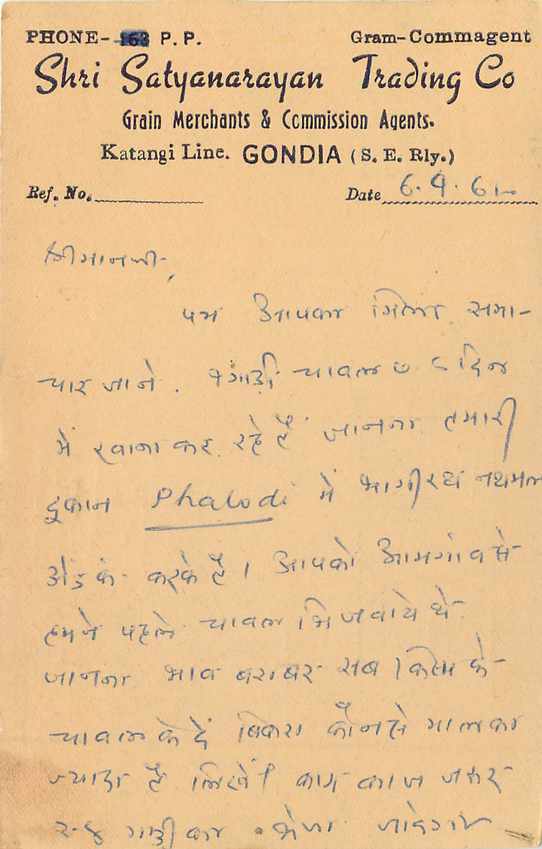 PHONE- 163 P. P. Gram-Commagent
Shri Satyanarayan Trading Co
Grain Merchants & Commission Agents.
Katangi Line. GONDIA (S. E. Rly.)
Ref. No. Date 6.9.62
श्रीमानजी,
पत्र आपका मिला समा-
चार जाने. १ गाड़ी चावल ७ ८ दिन
में रवाना कर रहे हैं जानना हमारी
दुकान Phalodi में भागीरथ नथमल
अेंड कं. करके है। आपको आमगांव से
हमने पहले चावल भिजवाये थे
जानना भाव बराबर सब किस्म के
चावल के दें बिकरा कौनसे माल का
ज्यादा है लिखें। काम काज जरूर
२-४ गाड़ी का